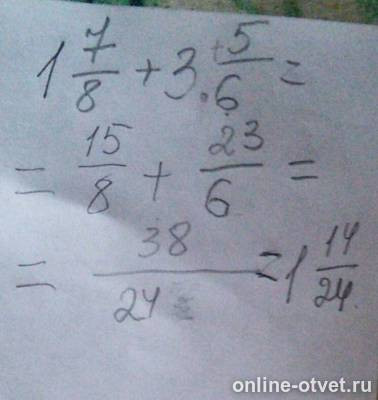 1 7/8 + 3 5/6 =
= 15/8 + 23/6 =
= 38/24 = 1 14/24
online-otvet.ru